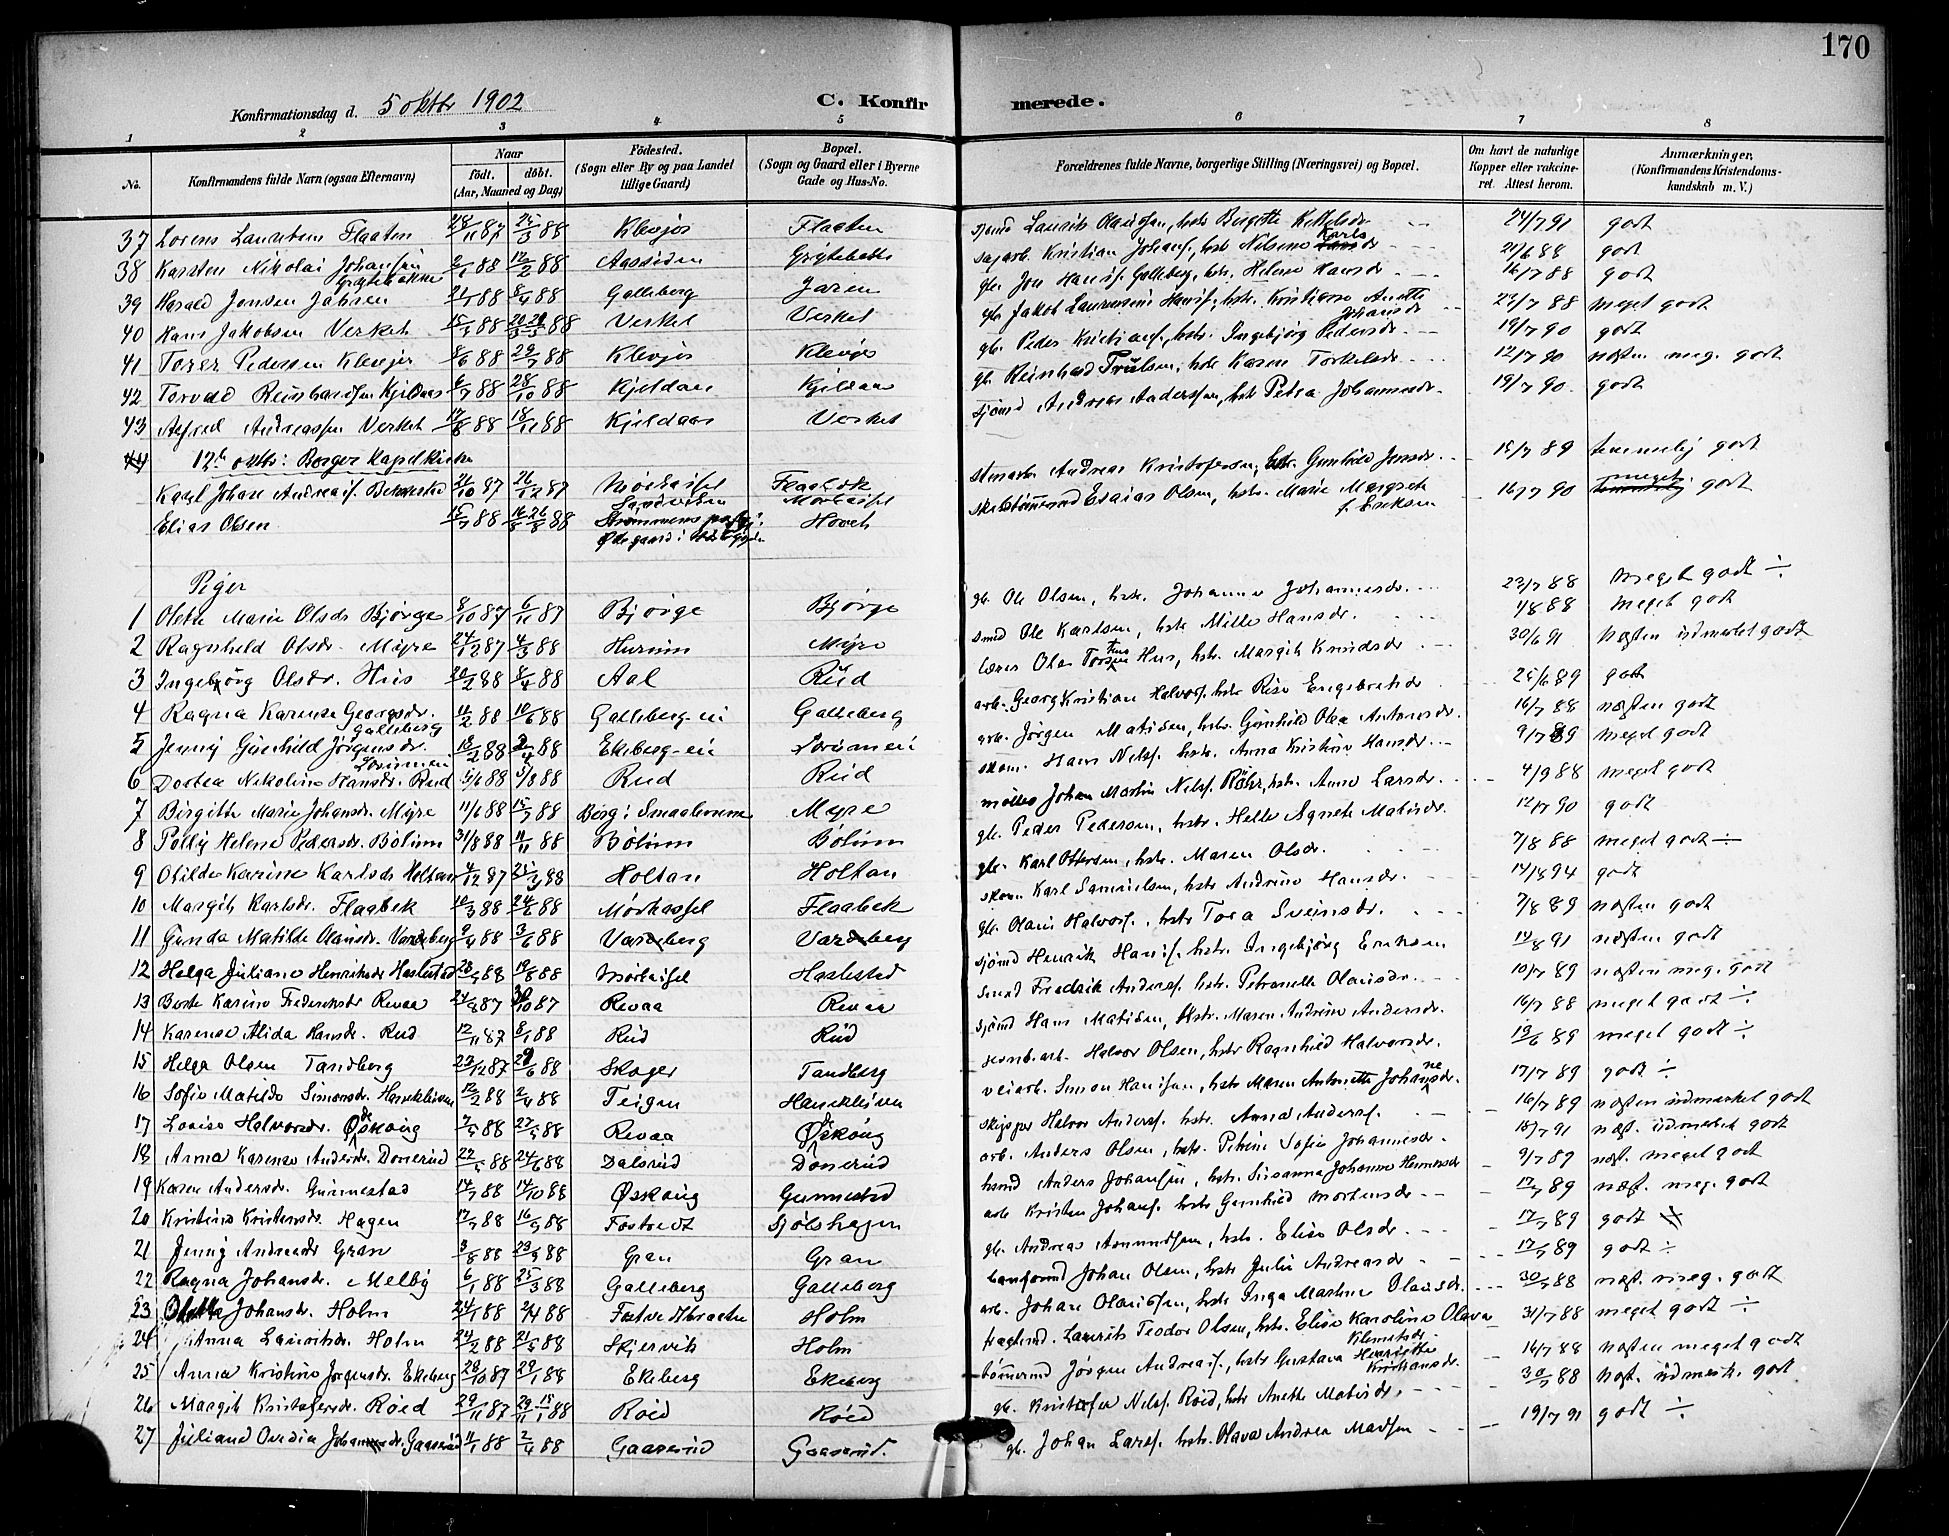 170
Konfirmationsdag d. 5 oktbr 1902
C. Konfirmerede.
1 2 3 4 5 6 7 8
No.
Konfirmandens fulde Navn (ogsaa Efternavn)
Naar
født. døbt.
(Aar, Maaned og Dag)
Fødested.
(Sogn eller By og paa Landet
tillige Gaard)
Bopæl.
(Sogn og Gaard eller i Byerne
Gade og Hus-No.
Forældrenes fulde Navne, borgerlige Stilling (Næringsvei) og Bopæl.
Om havt de naturlige
Kopper eller vakcine-
ret. Attest herom.
Anmærkninger.
(Konfirmandens Kristendoms-
kundskab m. V.)
37 Lorens Lauritsen Flaaten 28/11 87 25/3 88 Klevjer Flaaten sjømd Laurits Olausen, hstr Birgitte Kittelsdr 24/7 91 godt
38 Karsten Nikolai Johansen Grytebakke 2/1 88 12/2 88 Aassiden Grytebakke sagarb. Kristian Johans., hstr Nilsine Karlsdr 21/6 88 godt
39 Harald Jonsen Jahren 21/1 88 8/4 88 Galleberg Jaren gbr. Jon Hansf. Galleberg, hstr. Helene Hansdr. 16/7 88 godt
40 Hans Jakobsen Verket 15/3 88 88 Verket Verket gbr Jakob Laurensius Hansf., hstr. Kristiane Anette Johansdr 24/7 88 meget godt
41 Torer Pedersen Klevjer 8/6 88 29/7 88 Klevjer Klevjer gbr. Peder Kristians., hstr. Ingebjørg Pedersdr. 19/7 90 godt
42 Torvald Reinhardsen Kjeldaas 6/7 88 28/10 88 Kjeldaas Kjeldaas gb. Reinhard Trulsen, hstr Karen Torkelsdr 12/7 90 næsten meg. godt
43 Alfred Andreassen Verket 17/8 88 18/11 88 Kjeldaas Verket sjømd Andreas Anderssen, hstr Petra Johannesdr. 19/7 90. godt
44 12te oktbr: Berger Kapelkirke
Karl Johan Andreasf. Bekkestad 21/10 87 26/12 87 Mørkassel Flaabek Mørkassel stenarb. Andreas Kristofersen, hstr. Gunhild Jensdr. 15/7 89 temmelig godt
Elias Olsen 15/7 88 88 Sandviken Strømmens Ødegaard i Hovet skibstømmermd Esaias Olsen, hstr. Marie Margrete f. Eriksen 16/7 90 meget godt
Piger
1 Olette Marie Olsdr Bjørge 8/10 87 6/11 87 Bjørge Bjørge gb. Ole Olsen, hstr. Johanne Johannesdr. 23/7 88 meget godt ÷
2 Ragnhild Olsdr. Myre 24/12 87 4/3 88 Hurum Myre smed Ole Karlsen, hstr Mille Hansdr. 4/8 88 meget godt
3 Ingebjørg Olsdr. Hus 20/2 88 8/4 88 Aal Rud lærer Ola Torsen Hus, hstr. Margit Knudsdr 30/6 91 Næsten udmerket godt
4 Ragna Karense Georgsdr. Galleberg 11/2 88 10/6 88 Galleberg-ei Galleberg arb. Georg Kristian Halvors. hstr Rise Engebretsdr 25/6 89 godt
5 Jenny Gunhild Jørgensdr. 18/2 88 2/4 88 Ekeberg-ei arb. Jørgen Matisen, hstr. Gunhild Olea Antonsdr. 16/7 88 næsten godt
6 Dortea Nikoline Hansdr. Rud 5/1 88 88 Rud Rud skom. Hans Nilsf. hstr. Anna Kristine Hansdr. 9/7 89 meget godt
7 Birgitte Marie Johansdr. Myre 11/1 88 15/7 88 Borg i Smaalenene Myre møller Johan Martin Nilsf. Røhr, hstr. Anne Larsdr. 4/9 88 meget godt
8 Polly Helene Pedersdr. Bølum 31/8 88 11/11 88 Bølum Bølum gb. Peder Pedersen, hstr. Helle Agnete Matisdr. 12/7 90 godt
9 Otilde Karine Karlsdr Holtan 4/12 87 25/3 88 Holtan Holtan gb. Karl Ottersen, hstr. Maren Olsdr. 7/8 88 meget godt ÷
10 Margit Karlsdr. Flaabek 10/3 88 24/6 88 Mørkassel Flaabek skom Karl Samuelsen, hstr Andrine Hansdr. 14/8 94 godt
11 Gunda Matilde Olausdr. Vardeberg 9/4 88 3/6 88 Vardeberg Vardeberg gb. Olaus Halvors., hstr Tora Sveinsdr. 7/8 89 næsten godt
12 Helga Juliane Henriksdr Haslestad 88 19/8 88 Mørkassel Haslestad sjømd Henrik Hansf. hstr. Ingebjørg Eriksen 14/8 91 næsten godt
13 Karine Frederiksdr Revaa 24/8 87 87 Revaa Revaa smed Fredrik Anders. hstr. Petronelle Olausdr. 10/7 89 næsten meg. godt
14 Karense Alida Hansdr. Rud 12/11 87 8/1 88 Rud Rud sjømd Hans Matisen, hstr. Maren Andrine Andersdr. 16/7 88 meget godt ÷
15 Helga Olsen Tandberg 23/12 87 88 Skoger Tandberg jernb.arb. Halvor Olsen, hstr Ragnhild Halvorsdr. 13/6 89 meget godt ÷
16 Sofie Matilde Simonsdr. Hanekleiven 12/2 88 2/4 88 Teigen Hanekleiven veiarb. Simon Hansen, hstr Maren Antonette Johannesdr. 17/7 89 godt ÷
17 Lovise Halvorsdr. Øskoug 7/5 88 27/5 88 Revaa Øskoug skipper Halvor Anders. hstr. Anna Anders. 16/7 89 næsten udmerket godt
18 Anna Karense Andersdr. Dønerud 22/5 88 24/6 88 Dalsrud Dønerud arb. Anders Olsen, hstr. Petrine Sofie Johannesdr. 15/7 91 næst. udmerket godt
19 Karen Andersdr. Gunnestad 14/7 88 14/10 88 Øskoug Gunnestad hsmd Anders Johansen, hstr. Susanna Johanne 9/7 89 næst. meget godt
20 Kristine Kristensdr. Hagen 17/7 88 16/9 88 Fostvedt Sjølshagen arb Kristen Johans. hstr Gunhild Mortensdr 17/7 89 næst. meg. godt
21 Jenny Andreasdr Gran 3/8 88 23/9 88 Gran Gran gb. Andreas Amundsen, hstr. Elise Olsdr. 17/7 89 godt ÷
22 Ragna Johansdr. Melby 6/1 88 25/3 88 Galleberg Galleberg Johan Olsen, hstr Julie Andreasdr 17/7 89 godt ÷
23 Johansdr. Holm 24/1 88 2/4 88 Holm arb. Johan Olausen, hstr Inga Martine Olausdr. 30/7 88 næst. meg. godt
24 Anna Lauritsdr. Holm 24/2 88 21/5 88 Skjervik Holm Laurits Teodor Olsen, hstr. Elise Karoline Olava Klemetsdr 31/7 88 meget godt ÷
25 Anna Kristine Jørgensdr. Ekeberg 28/10 87 29/1 88 Ekeberg Ekeberg tømmermd Jørgen Andreasf., hstr Gustava Henriette Kristiansdr. 16/7 88 Næsten meget godt
26 Margit Kristofersdr. Røed 29/11 87 88 Røed Røed gb. Kristofer Nilsf. Røed, hstr Anette Matisdr. 30/7 88 Næst. udmerk. godt
27 Juliane Ovedia Gaaserud 11/1 88 2/4 88 Gaaserud Gaaserud. gb. Johan Larsf. hstr. Olava Andrea Madsen 19/7 91 godt ÷